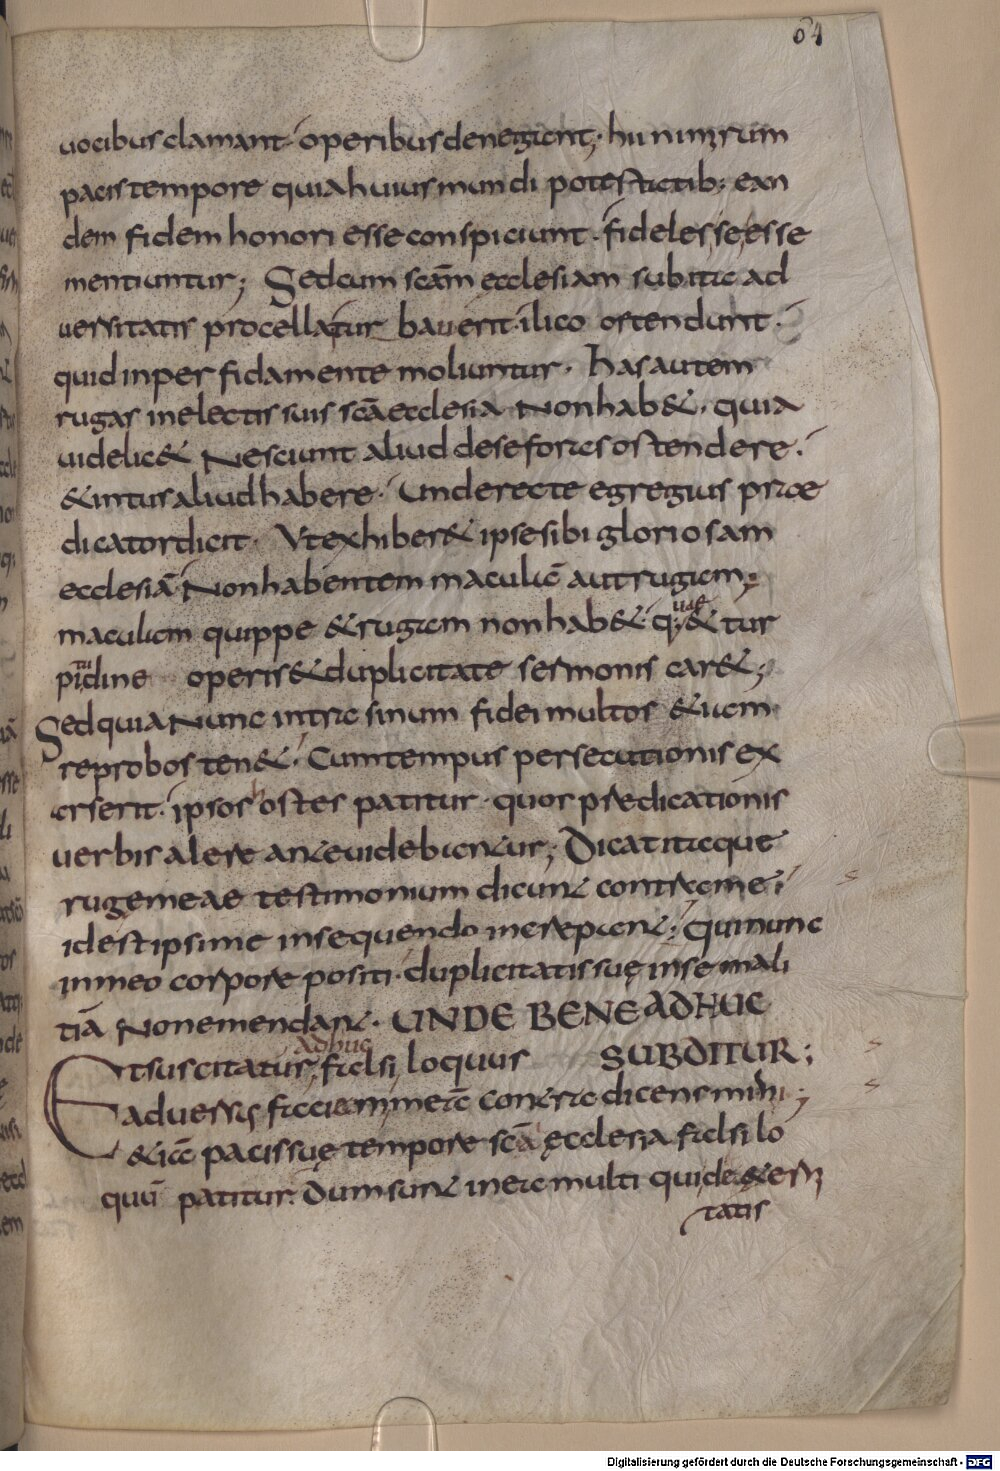 64
uocibus clamant· operibus denegant; hii nimirum
pacis tempore quia huius mundi potestatib; ean
dem fidem honori esse conspiciunt· fideles se esse
mentiuntur; Sed cum scām ęcclesiam subita ad
uersitatis procella turbauerit· ilico ostendunt·
quid in perfida mente moliuntur· has autem
rugas in electis suis scā ecclesia Non hab&· quia
uidelic& Nesciunt aliud de se foras ostendere·
& intus aliud habere· Unde recte egregius prae
dicator dicit· Vt exhiber& ipse sibi gloriosam
ecclesiā Non habentem maculā aut rugam;
maculam quippe & rugam non hab& q; uae & tur
pitudine operis & duplicitate sermonis car&;
Sed quia Nunc intra sinum fidei multos &iam
reprobos ten&· Cum tempus persecutionis ex
arserit· ipsos hostes patitur· quos predicationis
uerbis alere ante uidebantur; Dicat itaque
rugę meae testimonium dicunt contra me·
id est ipsi me insequendo increpant; qui nunc
in meo corpore positi· duplicitatis suę in se mali
tiā Non emendant· UNDE BENE ADHUC
adhuc
Et suscitatur falsiloquus SUBDITUR;
aduersus faciem meā contradicens mihi;
&iā pacis suę tempore scā ęcclesia falsilo
quū patitur· Dum sunt in ea multi qui de &er
nitatis
Digitalisierung gefördert durch die Deutsche Forschungsgemeinschaft - DFG